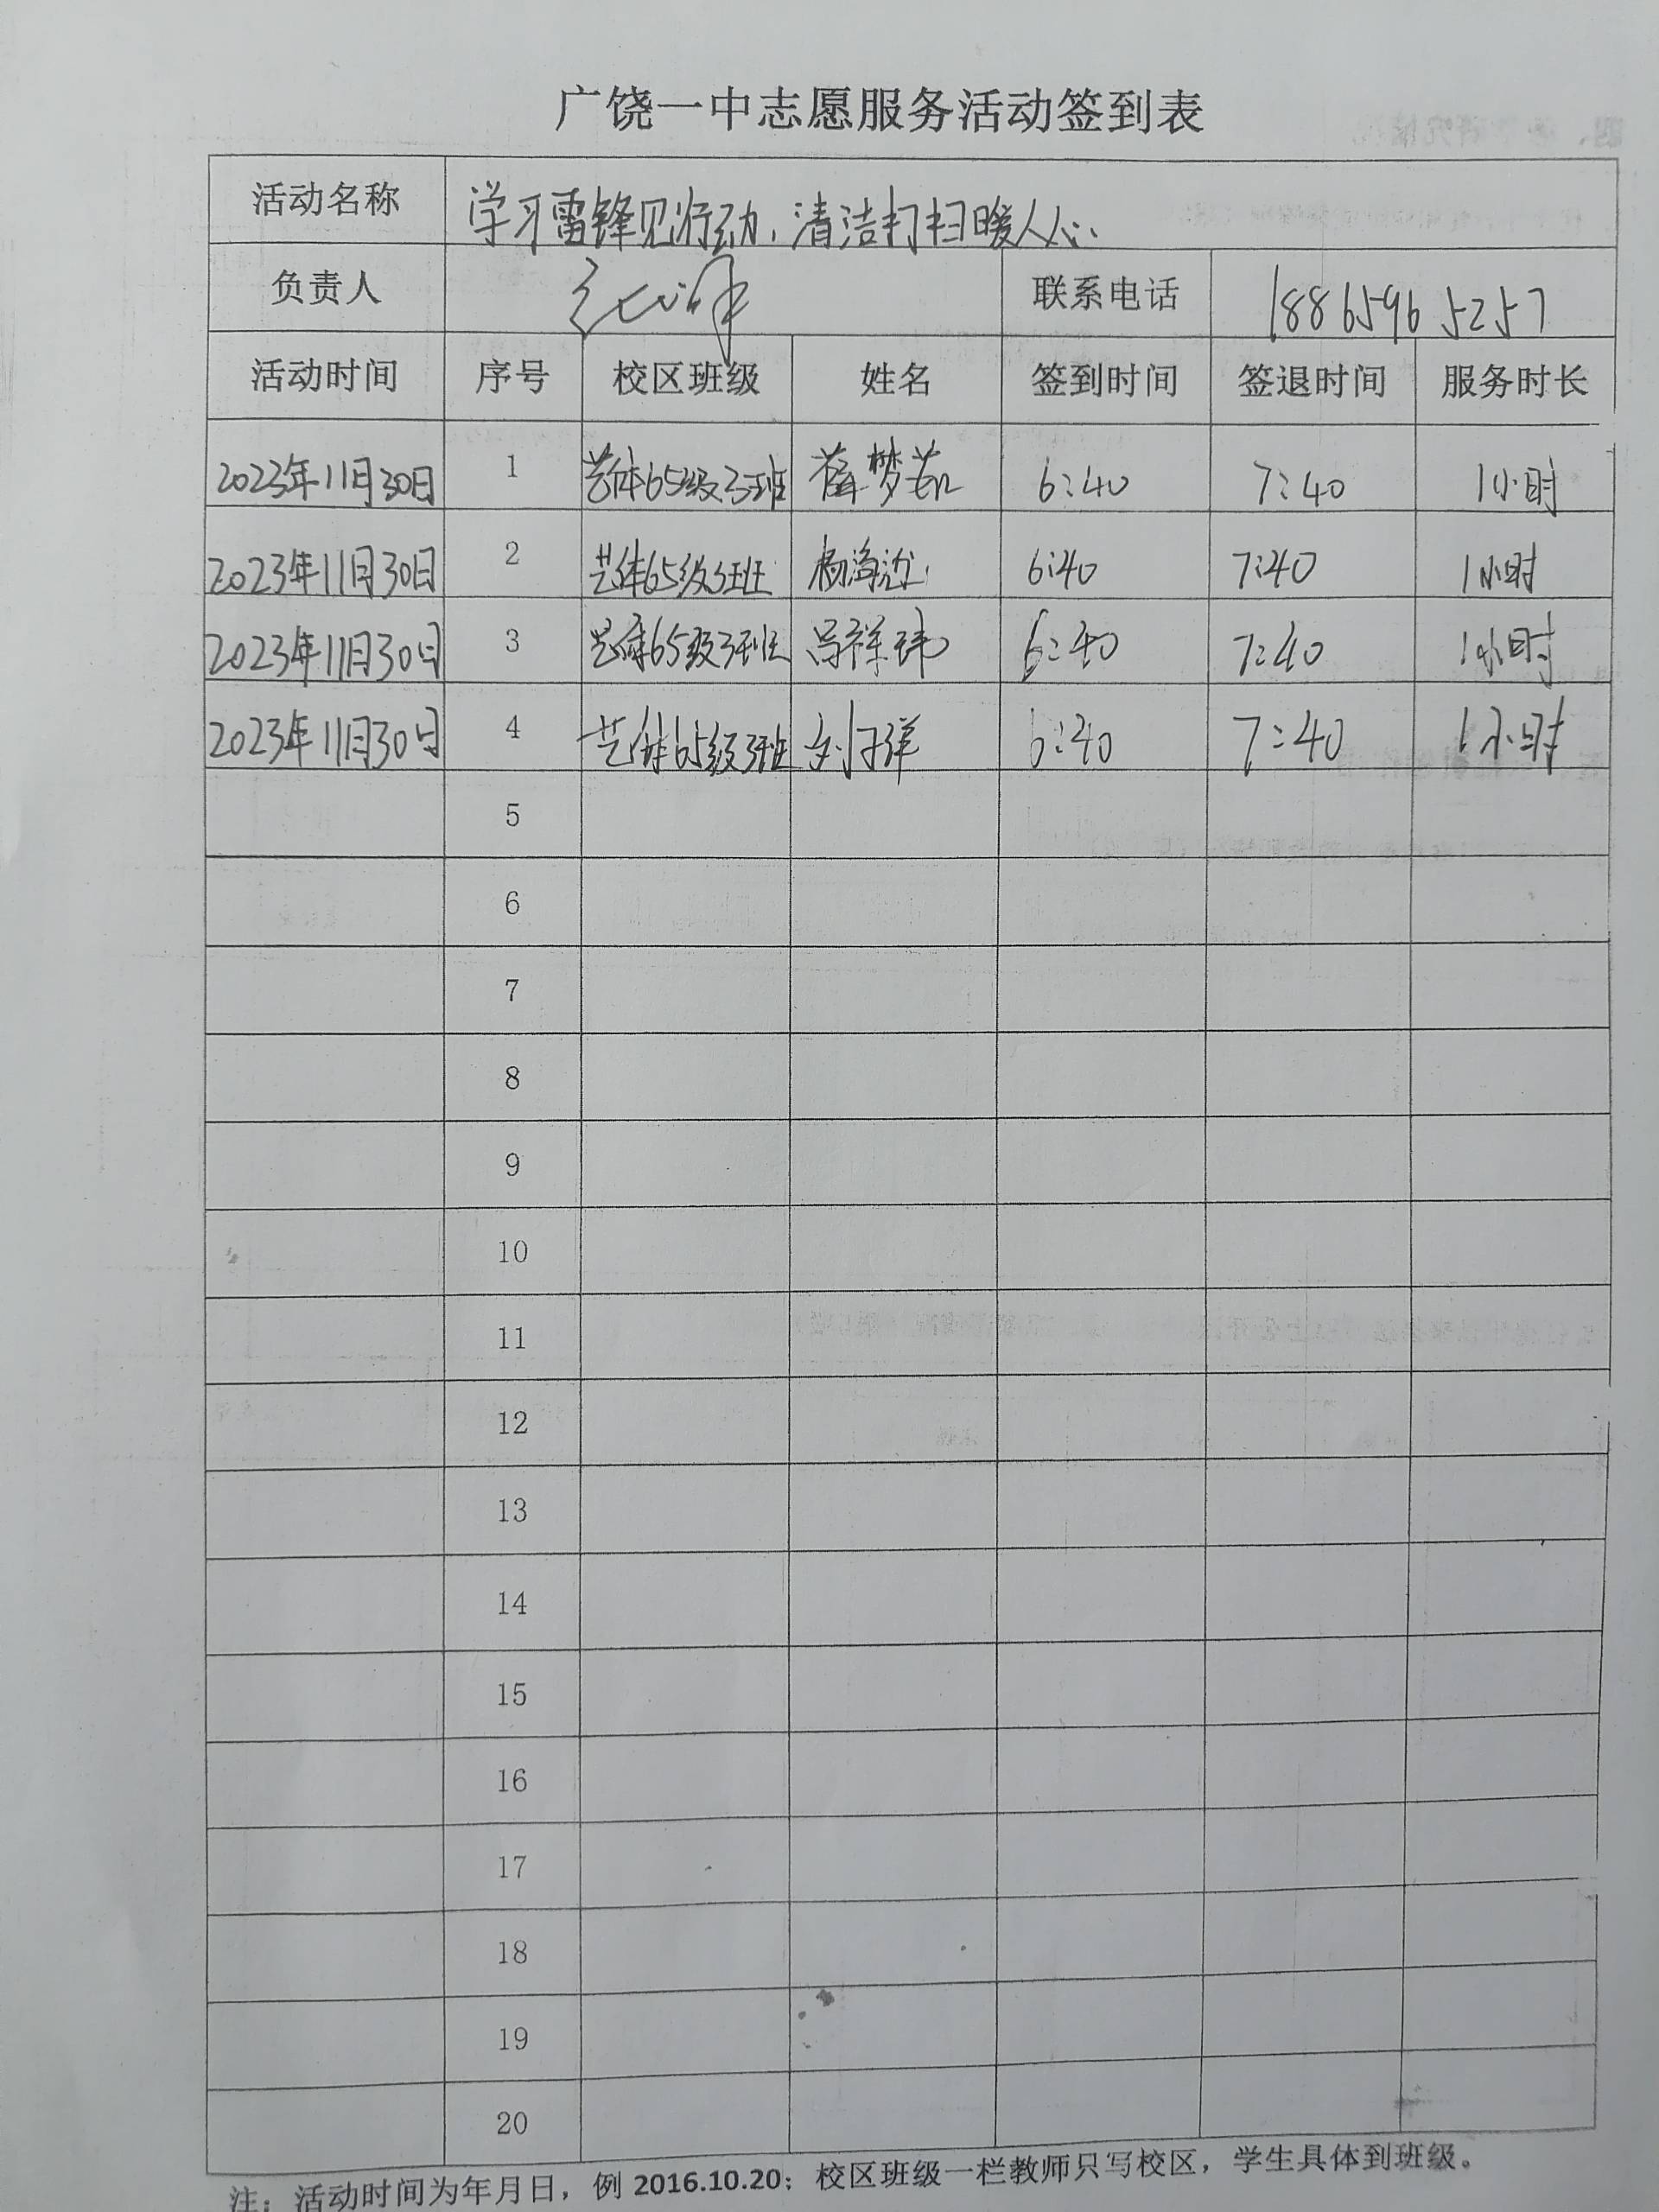 广饶一中志愿服务活动签到表
活动名称 学习雷锋见行动，清洁打扫暖人心
负责人 联系电话 18865965257
活动时间 序号 校区班级 姓名 签到时间 签退时间 服务时长
2023年11月30日 1 艺体65级3班 梦 6:40 7:40 1小时
2023年11月30日 2 艺体65级3班 杨海 6:40 7:40 1小时
2023年11月30日 3 艺体65级3班 吕祥玮 6:40 7:40 1小时
2023年11月30日 4 艺体65级3班 刘子洋 6:40 7:40 1小时
5
6
7
8
9
10
11
12
13
14
15
16
17
18
19
20
注：活动时间为年月日，例 2016.10.20；校区班级一栏教师只写校区，学生具体到班级。